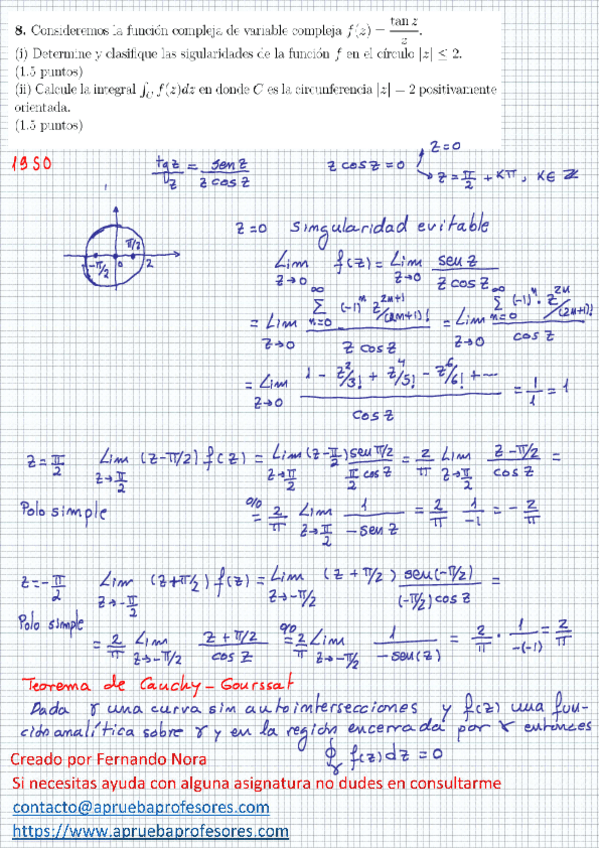 8. Consideremos la función compleja de variable compleja f(z) = tan z / z.
(i) Determine y clasifique las sigularidades de la función f en el círculo |z| ≤ 2.
(1.5 puntos)
(ii) Calcule la integral ∫_C f(z)dz en donde C es la circunferencia |z| = 2 positivamente
orientada.
(1.5 puntos)
19S0
tg z / z = sen z / (z cos z)   z cos z = 0 → z=0
→ z = π/2 + kπ, k∈ℤ
-π/2 0 π/2 2
z=0 singularidad evitable
Lim z→0 f(z) = Lim z→0 sen z / (z cos z)
= Lim z→0 (∞ Σ n=0 (-1)^n z^(2n+1)/(2n+1)!) / (z cos z) = Lim z→0 (∞ Σ n=0 (-1)^n z^(2n)/(2n+1)!) / cos z
= Lim z→0 (1 - z²/3! + z⁴/5! - z⁶/6! + ...) / cos z = 1/1 = 1
z = π/2 Lim z→π/2 (z-π/2) f(z) = Lim z→π/2 (z-π/2) sen π/2 / (π/2 cos z) = 2/π Lim z→π/2 (z-π/2) / cos z =
Polo simple 0/0 = 2/π Lim z→π/2 1/(-sen z) = 2/π 1/-1 = -2/π
z = -π/2 Lim z→-π/2 (z+π/2) f(z) = Lim z→-π/2 (z+π/2) sen(-π/2) / ((-π/2) cos z) =
Polo simple
= 2/π Lim z→-π/2 (z+π/2) / cos z 0/0 = 2/π Lim z→-π/2 1/(-sen(z)) = 2/π · 1/(-(-1)) = 2/π
Teorema de Cauchy-Gourssat
Dada γ una curva sin autointersecciones y f(z) una fun-
ción analítica sobre γ y en la región encerrada por γ entonces
∮_γ f(z)dz = 0
Creado por Fernando Nora
Si necesitas ayuda con alguna asignatura no dudes en consultarme
contacto@apruebaprofesores.com
https://www.apruebaprofesores.com